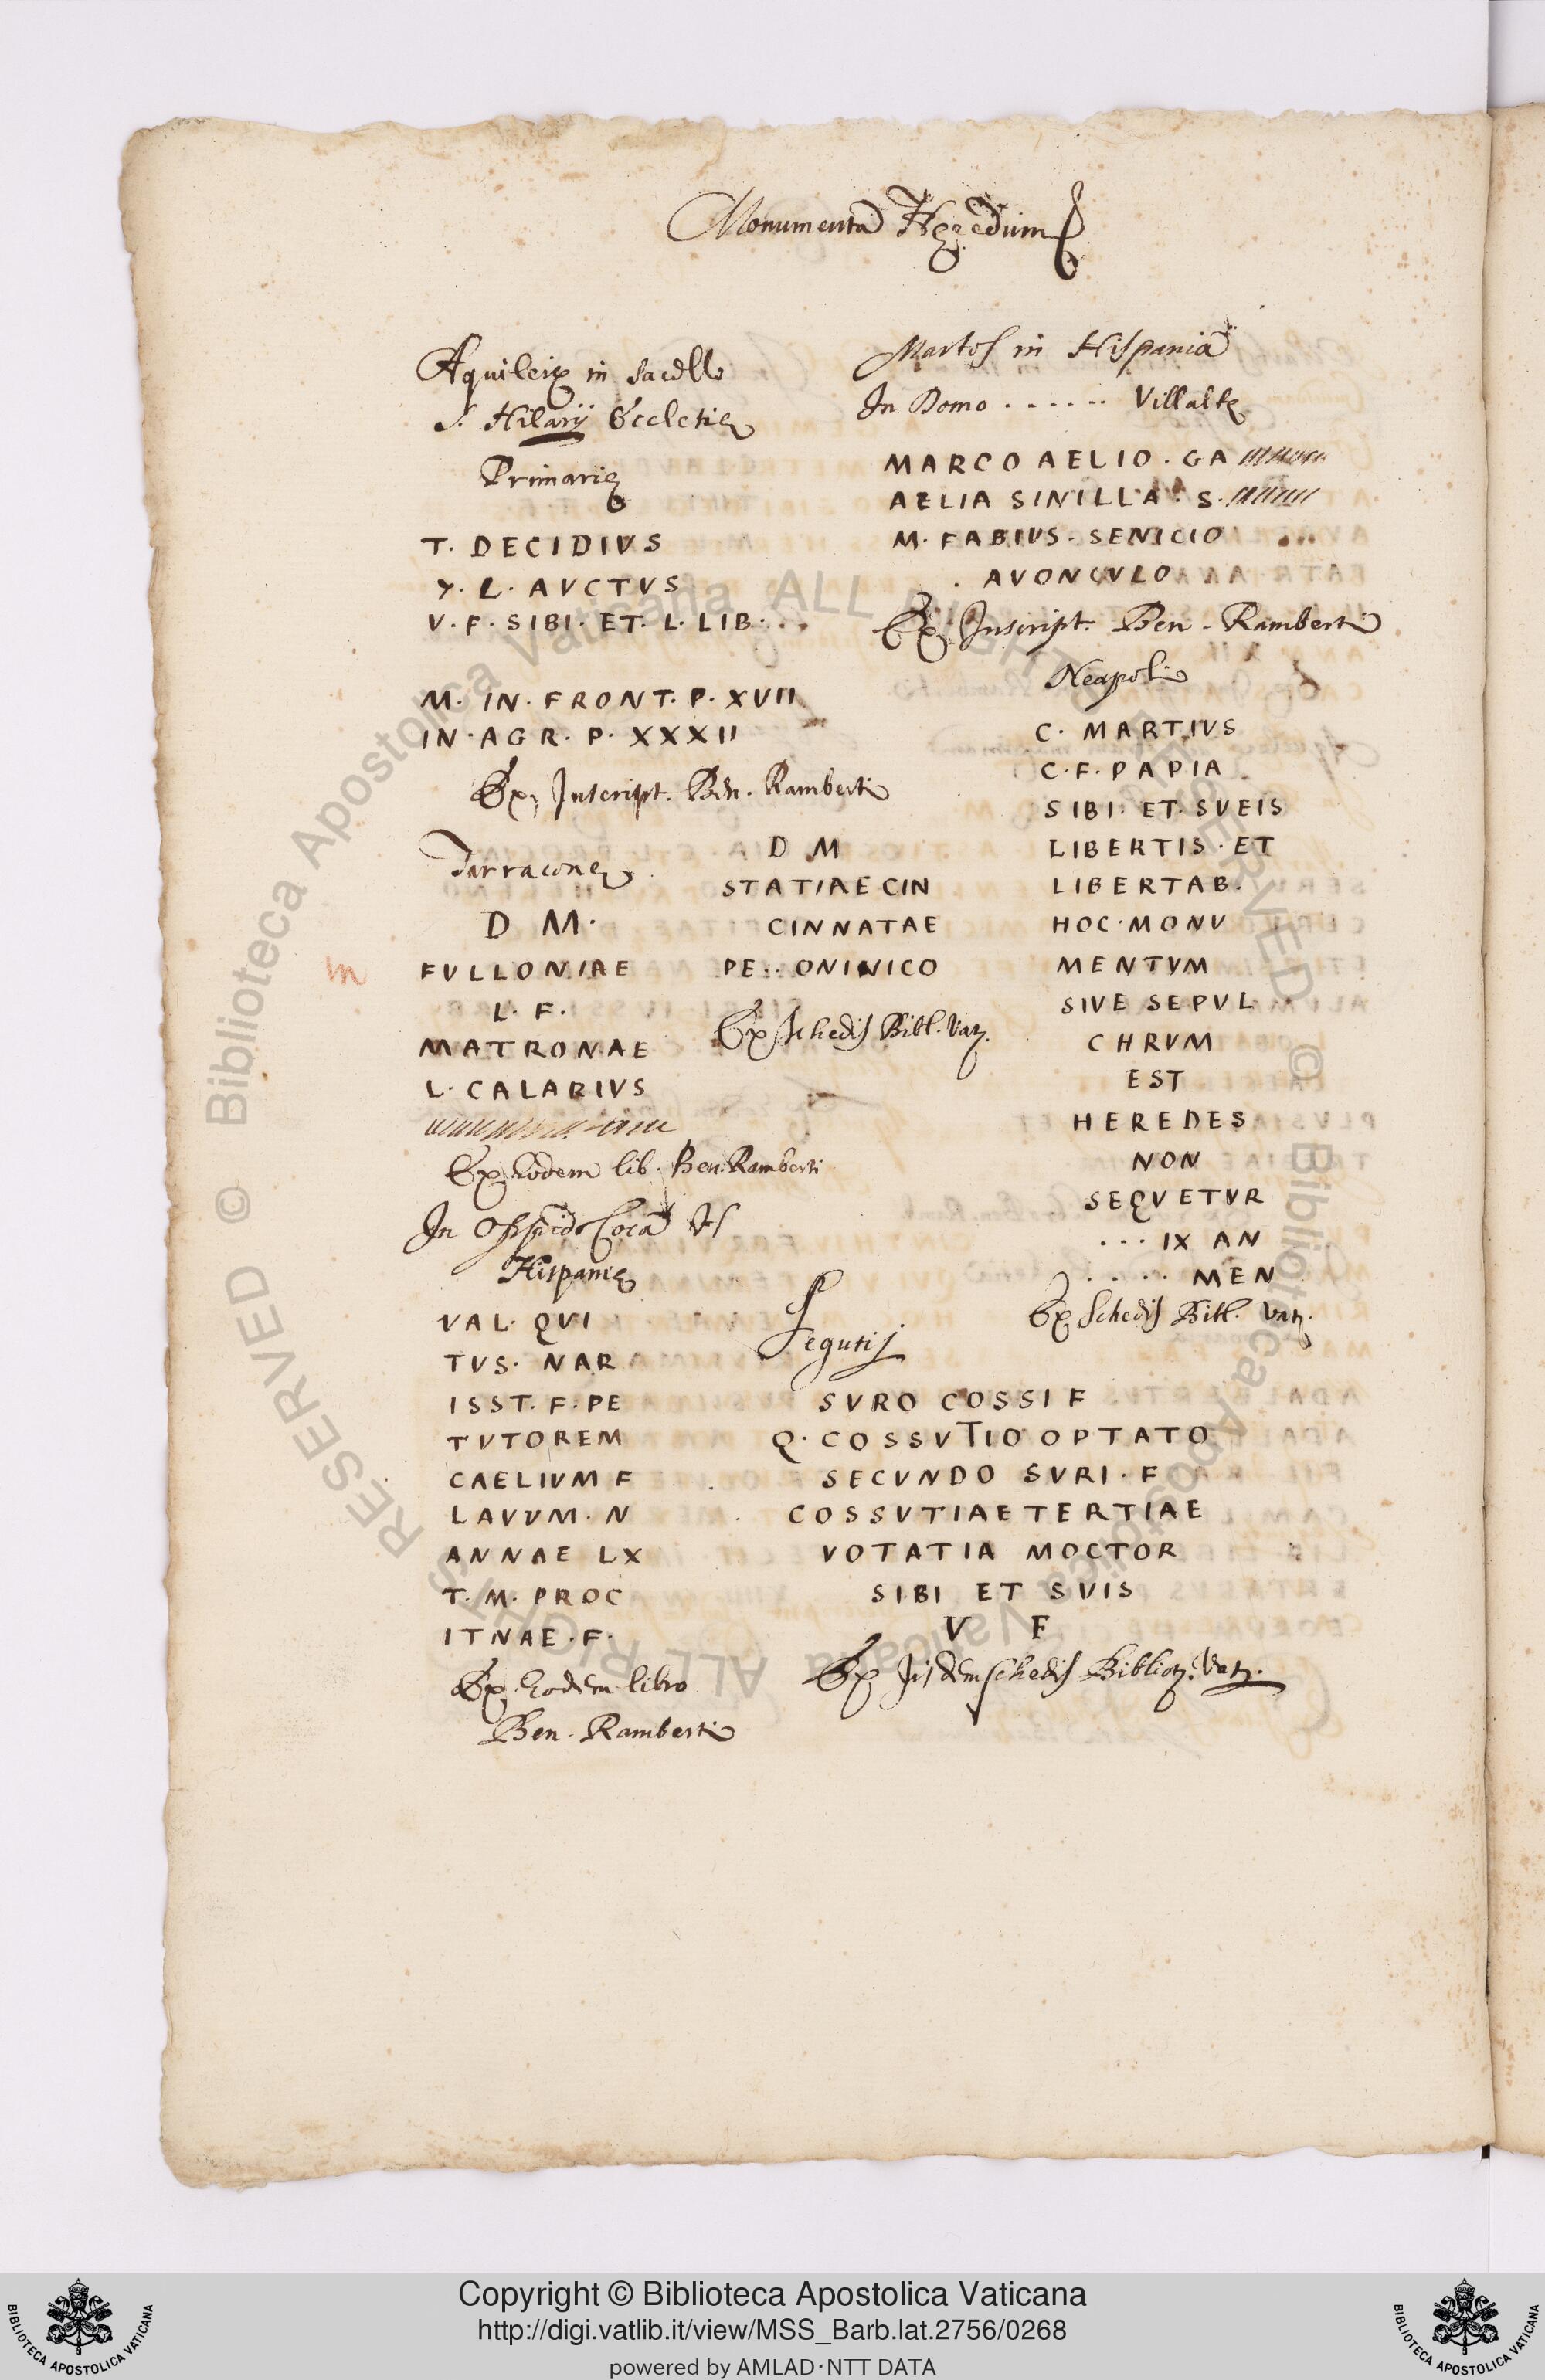 Monumenta Hęredum
Aquileię in sacello
S. Hilarij Ecclesię
Primarię
T. DECIDIVS
L. AVCTVS
V. F. SIBI. ET. L. LIB. . .
M. IN. FRONT. P. XVII
IN. AGR. P. XXXII
Ex Inscript. Ben. Ramberti
Tarracone
D M.
FVLLONIAE
L. F.
MATRONAE
L. CALARIVS
Ex Eodem lib. Ben. Ramberti
In Oppido Coca
Hispanię
VAL. QVI
TVS. NAR
ISST. F. PE
TVTOREM
CAELIVM F
LAVVM. N
ANNAE LX
T. M. PROC
ITNAE. F.
Ex Eodem libro
Ben. Ramberti
D M
STATIAE CIN
CINNATAE
PE. . ONINICO
Ex schedis Bibl. Vat.
Martos in Hispania
In Domo . . . . . . Villaltę
MARCO AELIO. GA
AELIA SINILLA. S.
M. FABIVS. SENICIO . . .
. AVONCVLO
Ex Inscript. Ben. Ramberti
Neapoli
C. MARTIVS
C. F. PAPIA
SIBI. ET. SVEIS
LIBERTIS. ET
LIBERTAB.
HOC. MONV
MENTVM
SIVE SEPVL
CHRVM
EST
HEREDES
NON
SEQVETVR
. . . IX AN
. . . . . MEN
Ex Schedis Bibl. Vat.
Segutij
SVRO COSSI F
Q. COSSVTIO OPTATO
SECVNDO SVRI. F
COSSVTIAE TERTIAE
VOTATIA MOCTOR
SIBI ET SVIS
V F
Ex Iisdem schedis Bibliot. Vat.
m
© Biblioteca Apostolica Vaticana ALL RIGHTS RESERVED
© Biblioteca Apostolica Vaticana ALL RIGHTS RESERVED
BIBLIOTECA APOSTOLICA VATICANA
Copyright © Biblioteca Apostolica Vaticana
http://digi.vatlib.it/view/MSS_Barb.lat.2756/0268
powered by AMLAD·NTT DATA
BIBLIOTECA APOSTOLICA VATICANA